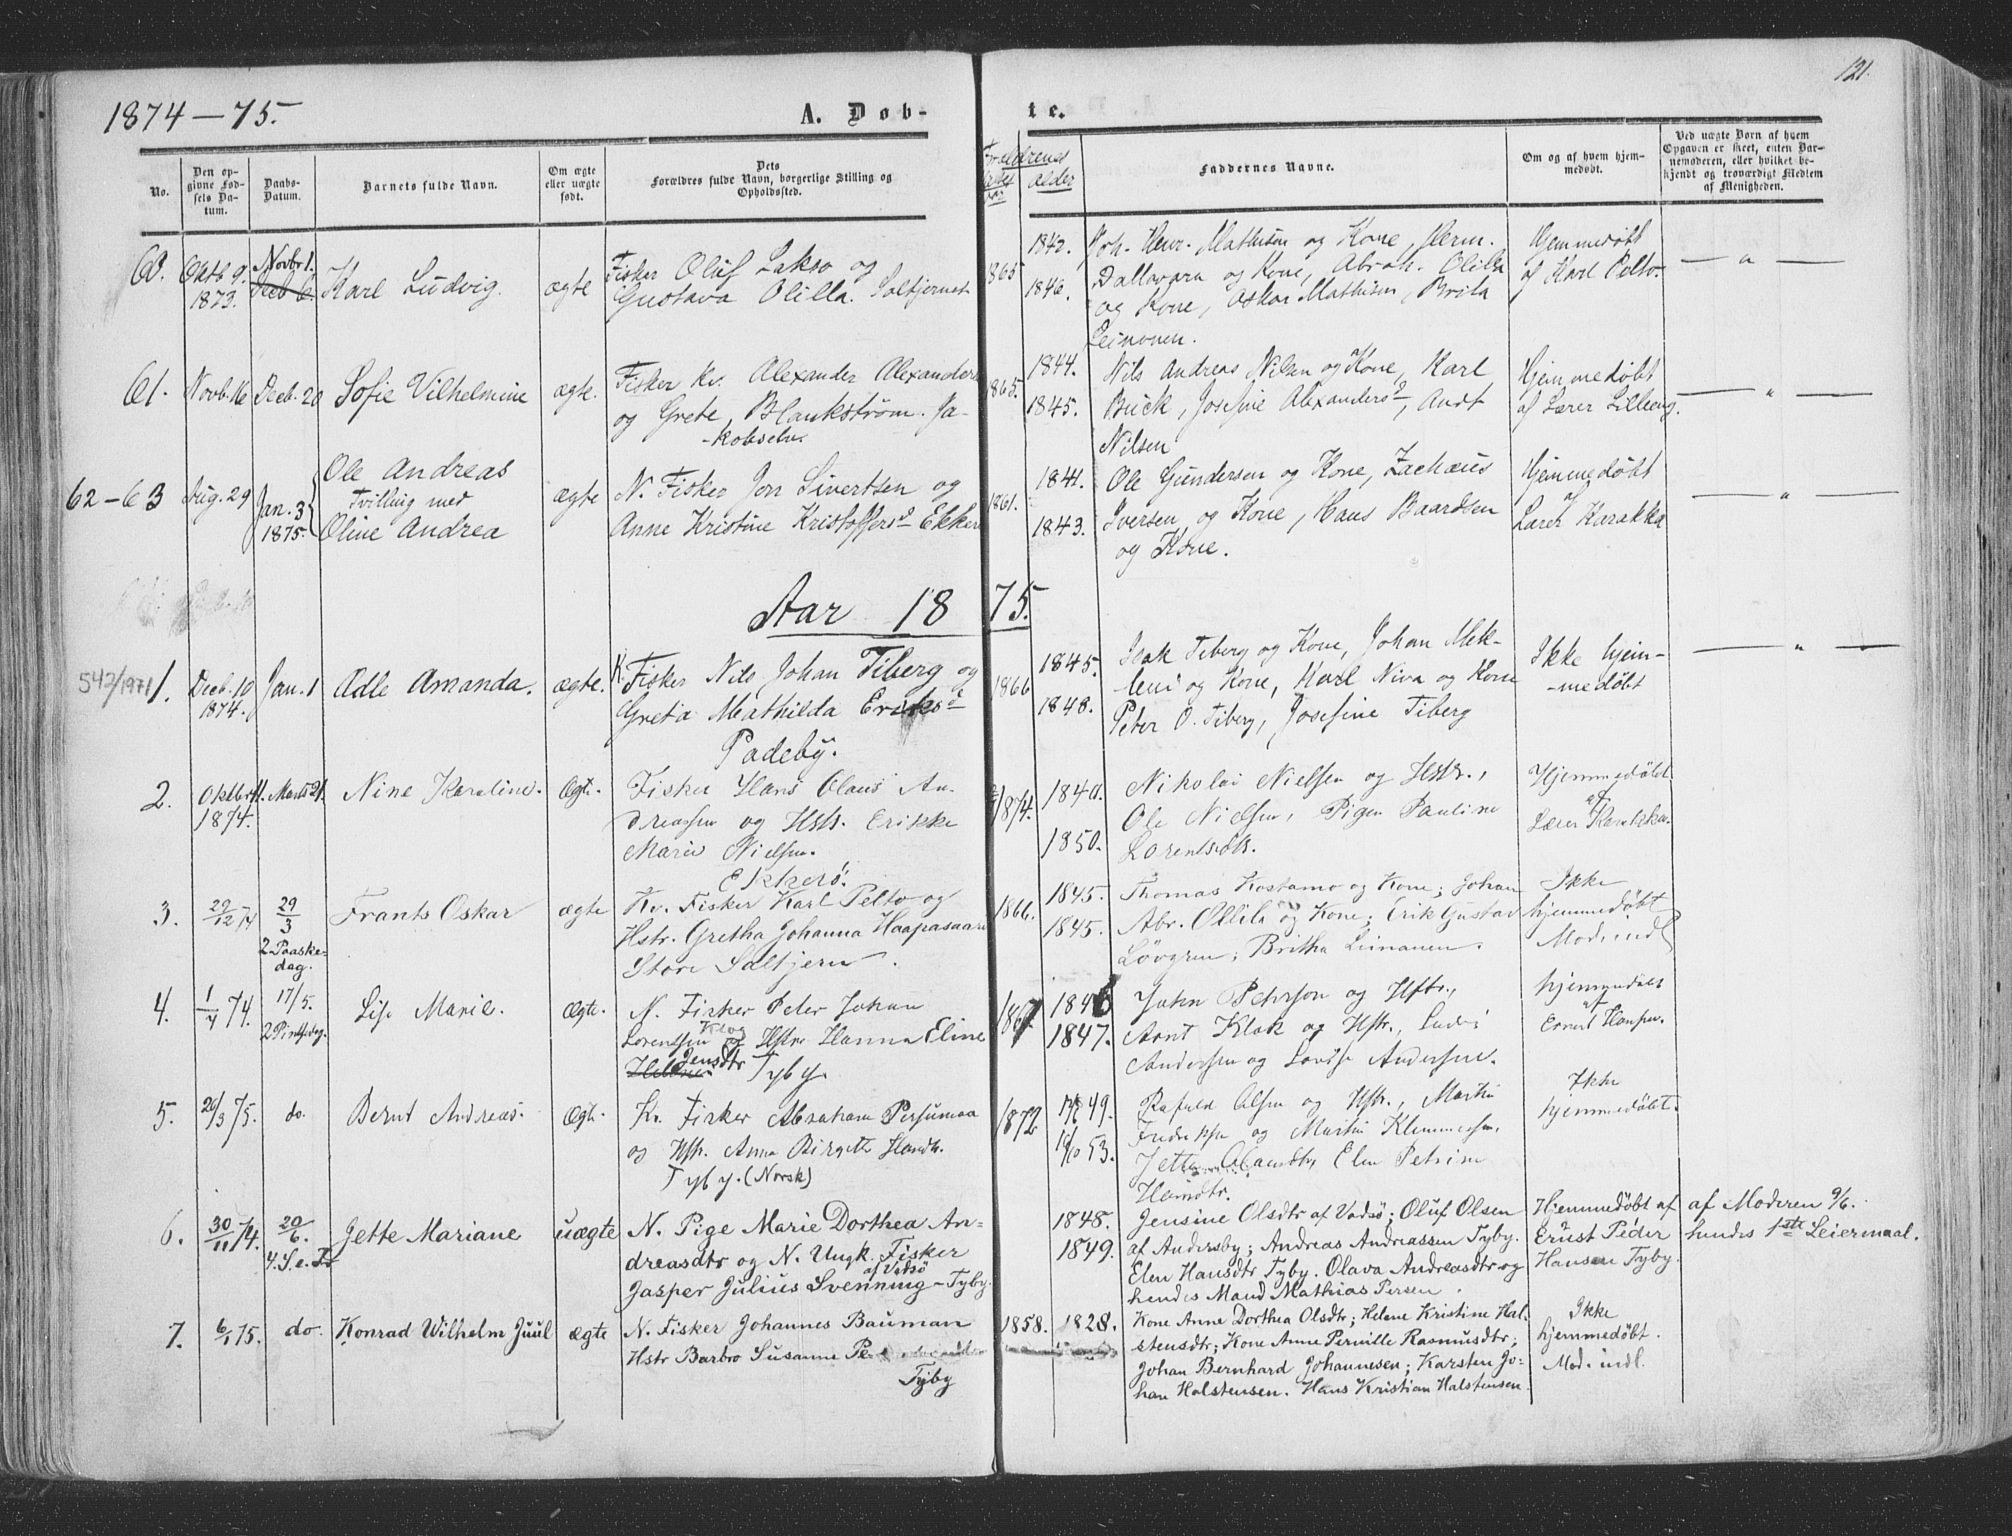 1874–75.
A. Døb-
te.
121.
No.
Den op-
givne Fød-
sels Da-
tum.
Daabs-
Datum.
Barnets fulde Navn.
Om ægte
eller uægte
født.
Dets
Forældres fulde Navn, borgerlige Stilling og
Opholdssted.
Forældrenes
alder
Faddernes Navne.
Om og af hvem hjem-
medøbt.
Ved uægte Børn af hvem
Opgaven er skeet, enten Bar-
nemoderen, eller hvilket be-
kjendt og troværdigt Medlem
af Menigheden.
60.
Oktb 9.
1873.
Novbr 1.
Decb 6
Karl Ludvig.
ægte
Fisker Oluf Lakso og
Gustava Olilla. Saltjernet
1865
1842.
1846.
Joh. Henr. Mathisen og Kone, Herm.
Dallavara og Kone, Abrah. Olilla
og Kone, Oskar Mathisen, Brita
Leinonen.
Hjemmedøbt
af Karl Pelto.
— " —
61.
Novb. 16
Decb. 20
Sofie Vilhelmine
ægte.
Fisker kv. Alexander Alexanders
og Grete Blankstrøm. Ja-
-kobselv.
1865.
1844.
1845.
Nils Andreas Nilsen og Kone, Karl
Buck, Josefine Alexandersd, Andt
Nilsen
Hjemmedøbt
af Lærer Lilleeng.
— " —
62–63
Aug. 29
Jan. 3
1875.
Ole Andreas
Tvilling med
Oline Andrea
ægte
N. Fisker Jon Sivertsen og
Anne Kristine Kristoffersd Ekkerø
1861.
1841.
1843.
Ole Gundersen og Kone, Zachæus
Iversen og Kone, Hans Baardsen
og Kone.
Hjemmedøbt
af
Lærer Karakka
— " —
Aar 1875.
542/1971
1.
Decb. 10
1874.
Jan. 1
Adle Amanda.
ægte.
K. Fisker Nils Johan Tiberg og
Greta Mathilda Eriksd
Padeby.
1866
1845.
1848.
Isak Tiberg og Kone, Johan Mek-
leni og Kone, Karl Niva og Kone
Peter O. Tiberg, Josefine Tiberg
Ikke hjem-
-medøbt
— " —
2.
Oktbr 11.
1874.
Marts 21.
Nine Karoline.
Ægte.
Fisker Hans Olaus An-
dreassen og Hstr. Erikke
Marie Nielsen.
Ekkerø.
1874.
1840.
1850.
Nikolai Nielsen og Hstr.,
Ole Nielsen, Pigen Pauline
Lorentsdtr.
Hjemmedøbt
af
Lærer Karakka.
3.
29/12 74
29/3
2 Paaske-
dag.
Frants Oskar
ægte
Kv. Fisker Karl Pelto og
Hstr. Gretha Johanna Haapasaari
Store Saltjern.
1866.
1845.
1845.
Thomas Kostamo og Kone; Johan
Abr. Ollila og Kone; Erik Gustav
Løvgren; Britha Leinanen.
Ikke
hjemmedøbt
Mod. indl
4.
1/7 74.
17/5.
2 Pintsdag.
Lise Marie.
Ægte.
N. Fisker Peter Johan
Lorentsen Klog og Hstr Hanna Eline
Jensdtr
Tyby
1867
1846
1847.
John Peterson og Hstr.,
Arnt Klok og Hstr., Ludvi
Andersen og Lovise Andersen.
hjemmedøbt
af
Ernst Hansen.
5.
20/3 75.
do.
Bernt Andreas.
Ægte.
Kv. Fisker Abraham Persumaa
og Hstr. Anna Birgith Hansdtr.
Tyby. (Norsk)
1872
49.
53.
Rafael Olsen og Hstr., Martin
Fredriksen og Martin Klemmetsen,
Jette Olausdtr, Elen Petrine
Heinsdtr.
Ikke
hjemmedøbt.
6.
30/11 74.
20/6.
4. S. e. Tr
Jette Mariane
uægte
N. Pige Marie Dorthea An-
dreasdtr og N. Ungk. Fisker
af Vadsø
Jasper Julius Svenning – Tyby.
1848.
1849.
Jensine Olsdtr af Vadsø; Oluf Olsen
af Andersby; Andreas Andreassen Tyby.
Elen Hansdtr Tyby. Olava Andreasdtr og
hendes Mand Mathias Persen.
Hjemmedøbt af
Ernst Peder
Hansen Tyby.
af Moderen 9/6.
hendes 1ste Leiermaal.
7.
6/1 75.
do.
Konrad Wilhelm Juul
ægte
N. Fisker Johannes Bauman
Hstr Barbro Susanne
Tyby
1858.
1828.
Kone Anne Dorthea Olsdtr; Helene Kristine Hal-
stensdtr; Kone Anne Pernille Rasmusdtr;
Johan Bernhard Johannesen; Karsten Jo-
han Halstensen. Hans Kristian Halstensen.
Ikke
hjemmedøbt.
Mod. indl.